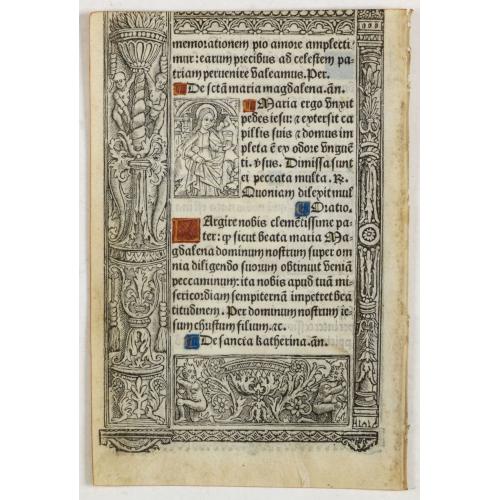 memorationem pio amore amplecti
mur: earum precibus ad celestem pa-
triam peruenire valeamus. Per.
De sctā maria magdalena. añ.
Maria ergo vnxit
pedes iesu: ⁊ extersit ca
pillis suis ⁊ domus im
pleta ē ex odore vnguē
ti. ṽsus. Dimissa sunt
ei peccata multa. R.
Quoniam dilexit mul
Oratio.
Largire nobis clemētissime pa-
ter: ꝙ sicut beata maria Ma-
gdalena dominum nostrum super om
nia diligendo suorum obtinuit veniā
peccaminum: ita nobis apud tuā mi-
sericordiam sempiternā impetret bea
titudinem. Per dominum nostrum ie-
sum christum filium. ⁊c.
De sancta katherina. añ.